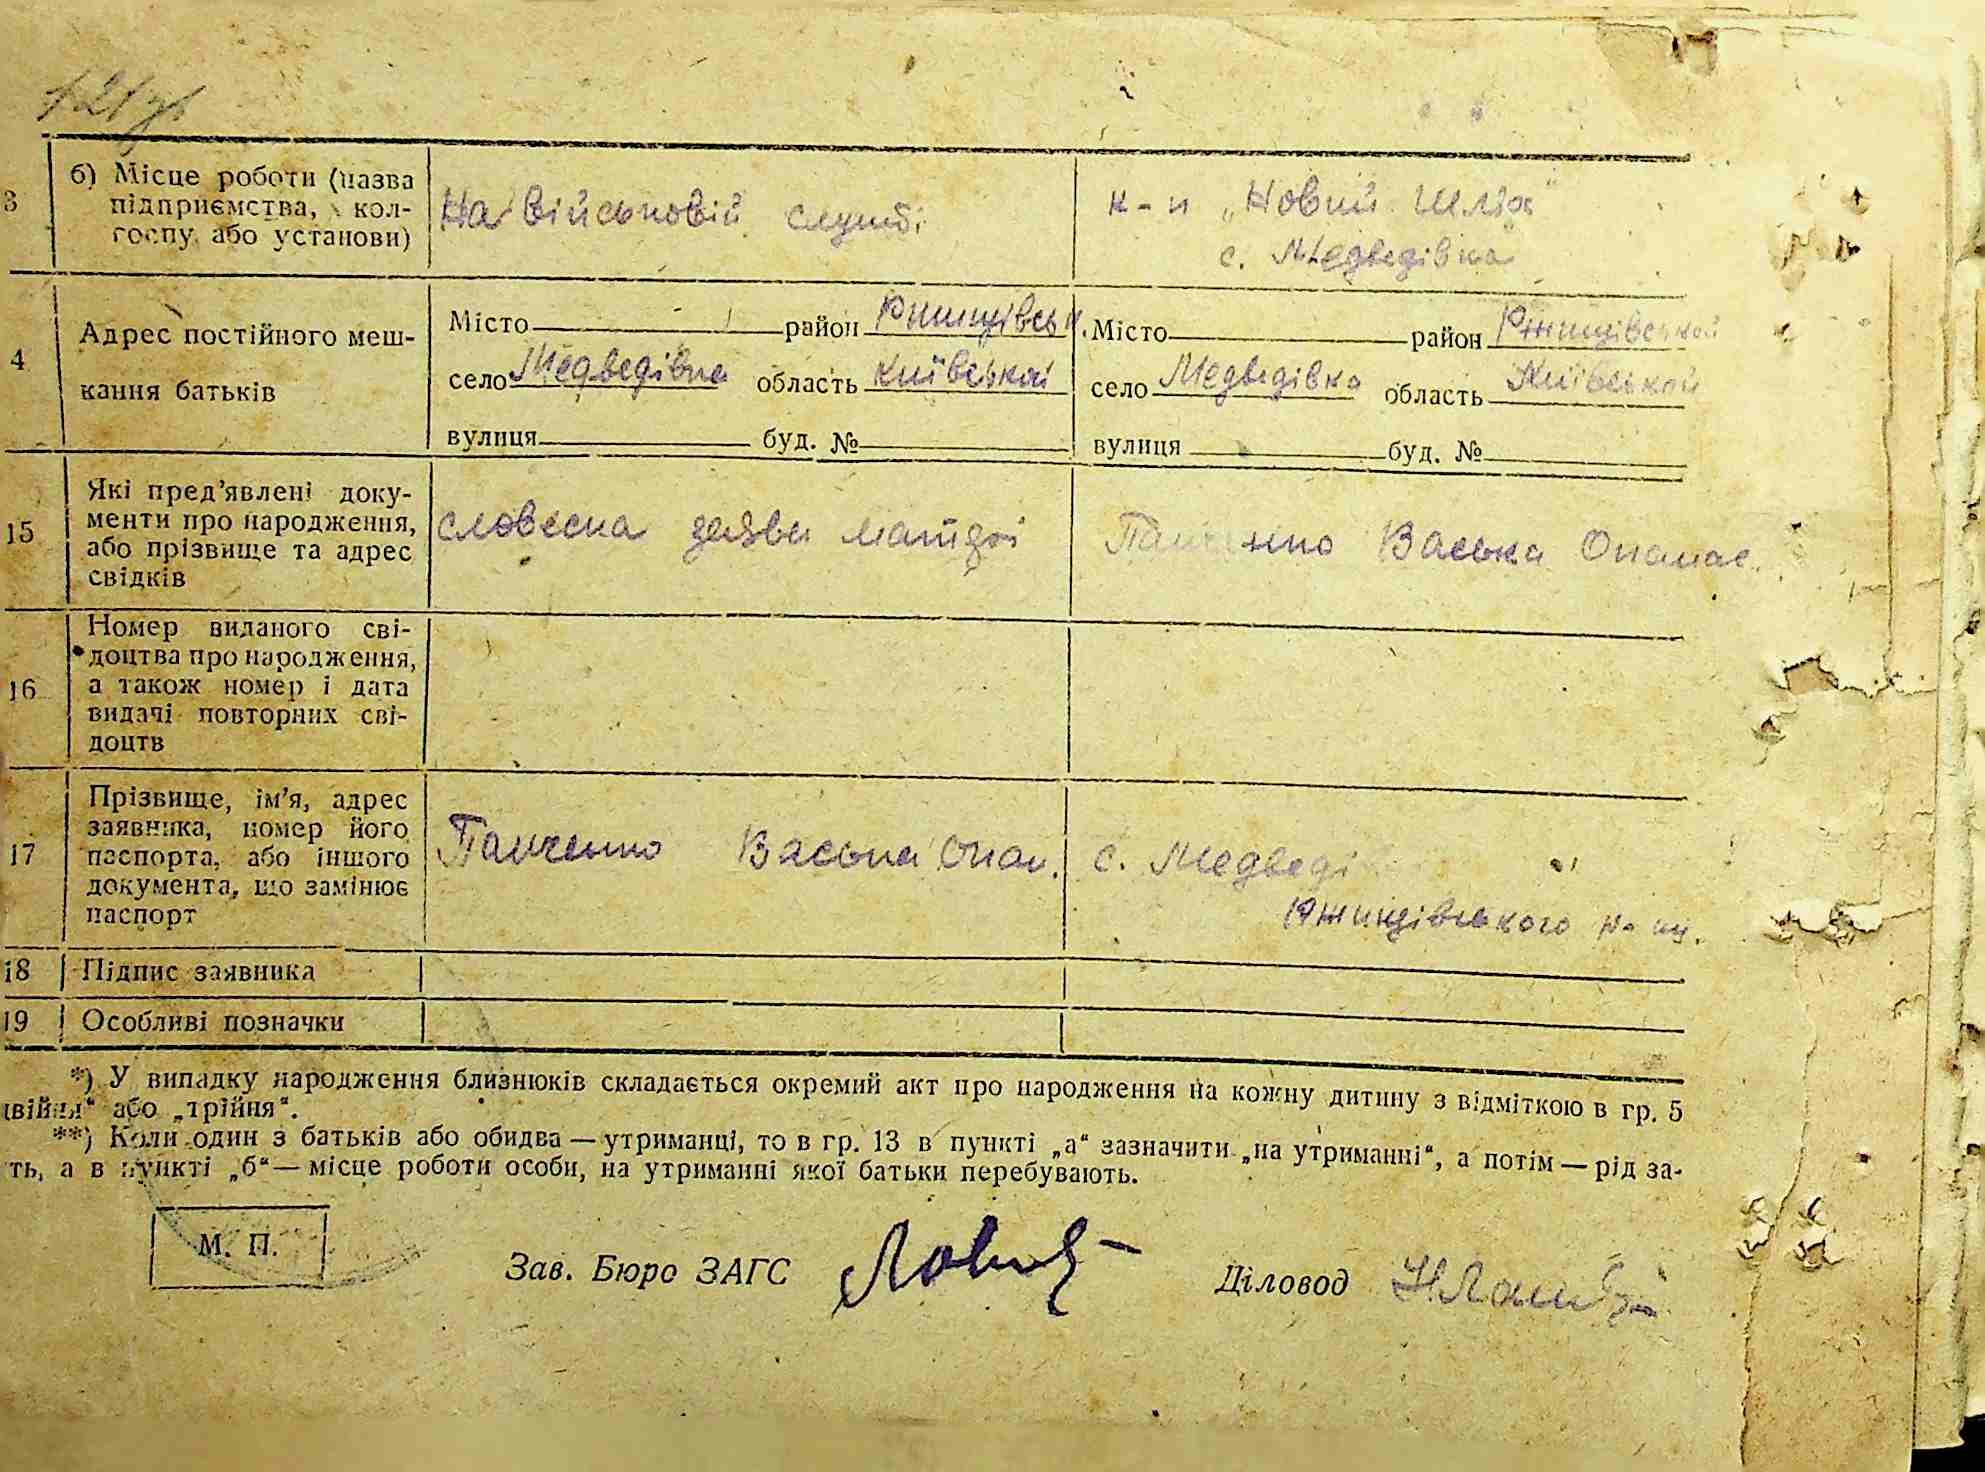 121 зв
3
б) Місце роботи (назва
підприємства, кол-
госпу або установи)
На військовій службі
к-п „Новий Шлях"
с. Медведівка
4
Адрес постійного меш-
кання батьків
Місто район Ржищівськ.
село Медведівка область Київської
вулиця буд. №
Місто район Ржищівської
село Медведівка область Київської
вулиця буд. №
15
Які пред'явлені доку-
менти про народження,
або прізвище та адрес
свідків
словесна заява матері
Панченко Васька Опанас.
16
Номер виданого сві-
доцтва про народження,
а також номер і дата
видачі повторних сві-
доцтв
17
Прізвище, ім'я, адрес
заявника, номер його
паспорта, або іншого
документа, що замінює
паспорт
Панченко Васька Опан.
с. Медведі
Ржищівського р-ну.
18 Підпис заявника
19 Особливі позначки
*) У випадку народження близнюків складається окремий акт про народження на кожну дитину з відміткою в гр. 5
двійня" або „трійня".
**) Коли один з батьків або обидва — утриманці, то в гр. 13 в пункті „а" зазначити „на утриманні", а потім — рід за-
ть, а в пункті „б" — місце роботи особи, на утриманні якої батьки перебувають.
М. П.
Зав. Бюро ЗАГС
Діловод